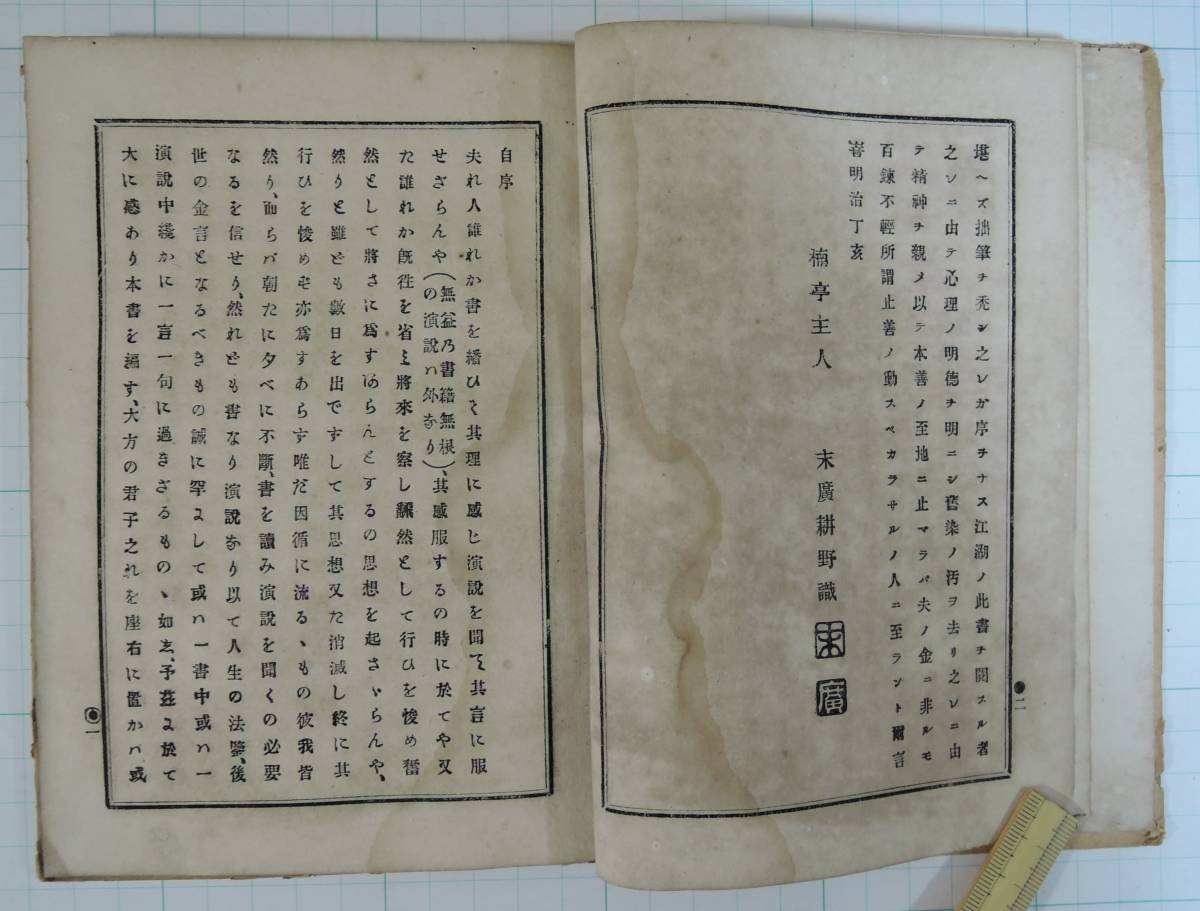 堪ヘズ拙筆ヲ禿シ之レガ序ヲナス江湖ノ此書ヲ閱スル者
之レニ由テ心理ノ明德ヲ明ニシ舊染ノ汚ヲ去リ之レニ由
テ精神ヲ親メ以テ本善ノ至地ニ止マラバ夫ノ金ニ非ルモ
百鍊不輕所謂止善ノ動スベカラサルノ人ニ至ラント爾言
旹明治丁亥
楠亭主人 末廣耕野識
末
廣
二
自序
夫れ人誰れか書を繙ひて其理に感じ演説を聞て其言に服
せざらんや(無益乃書籍無根の演説ハ外なり)、其感服するの時に於てや又
た誰れか旣徃を省ミ將來を察し飜然として行ひを悛め奮
然として將さに爲すあらんとするの思想を起さゞらんや、
然りと雖ども數日を出でずして其思想又た消滅し終に其
行ひを悛めず亦爲すあらず唯だ因循に流るゝもの彼我皆
然り、而らバ朝たに夕べに不斷、書を讀み演説を聞くの必要
なるを信せり、然れども書なり演説なり以て人生の法鑒、後
世の金言となるべきもの誠に罕よして或ハ一書中或ハ一
演説中纔かに一言一句に過きざるものゝ如し、予茲よ於て
大に感あり本書を編す、大方の君子之れを座右に置かバ或
一